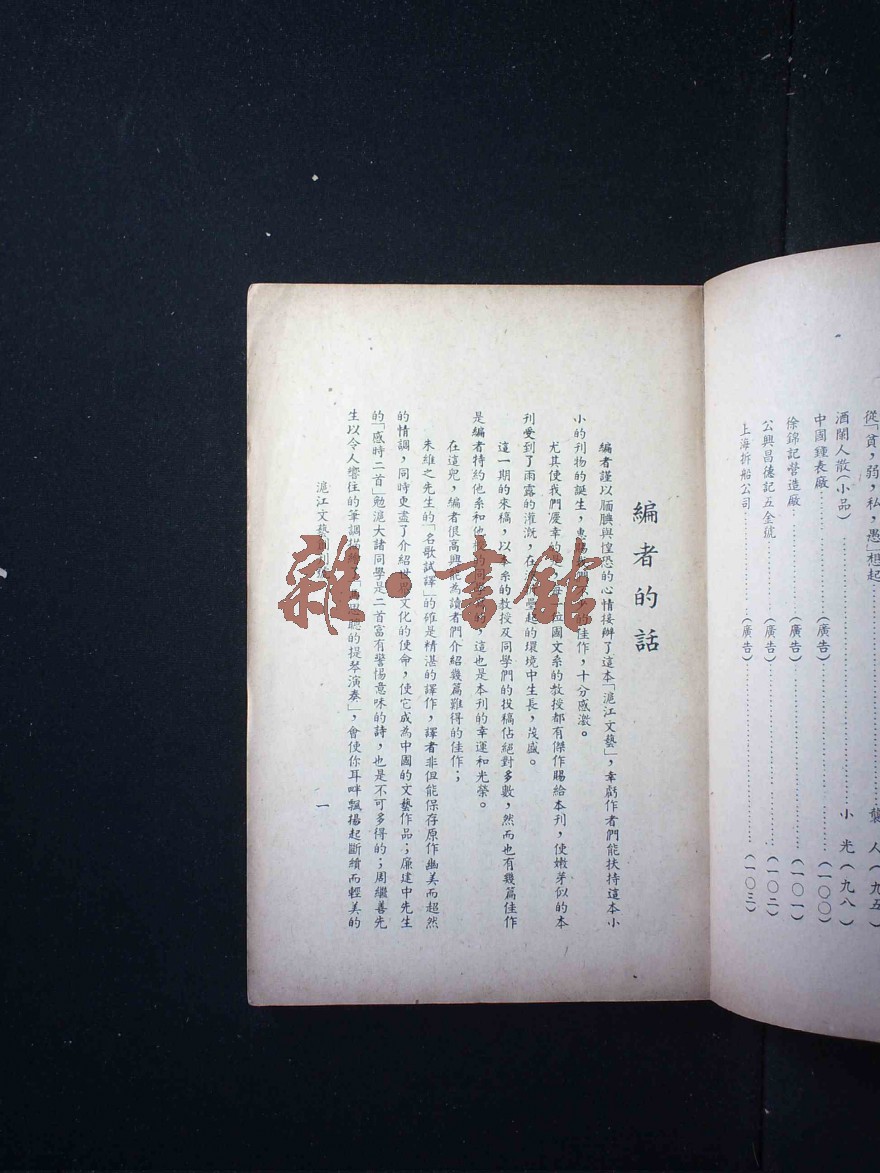 從「貧，弱，私，愚」想起……龔人（九五）
酒闌人散(小品)……小光（九八）
中國鐘表廠……（廣告）……（一〇〇）
徐錦記營造廠……（廣告）……（一〇一）
公興昌德記五金號……（廣告）……（一〇二）
上海拆船公司……（廣告）……（一〇三）
編者的話
編者謹以腼腆與惶恐的心情接辦了這本「滬江文藝」，幸虧作者們能扶持這本小
小的刊物的誕生，惠賜我們的佳作，十分感激。
尤其使我們慶幸的每一位國文系的教授都有傑作賜給本刊，使嫩芽似的本
刊受到了雨露的灌溉，在起的環境中生長，茂盛。
這一期的來稿，以本系的教授及同學們的投稿佔絕對多數，然而也有幾篇佳作
是編者特約他系和他的同學寫的，這也是本刊的幸運和光榮。
在這兒，編者很高興能為讀者們介紹幾篇難得的佳作；
朱維之先生的「名歌試譯」的確是精湛的譯作，譯者非但能保存原作幽美而超然
的情調，同時更盡了介紹世界文化的使命，使它成為中國的文藝作品；廉建中先生
的「感時二首」勉滬大諸同學是二首富有警惕意味的詩，也是不可多得的；周繼善先
生以令人嚮往的筆調描聽的提琴演奏」，會使你耳畔飄揚起斷續而輕美的
滬江文藝
一
雜·書館